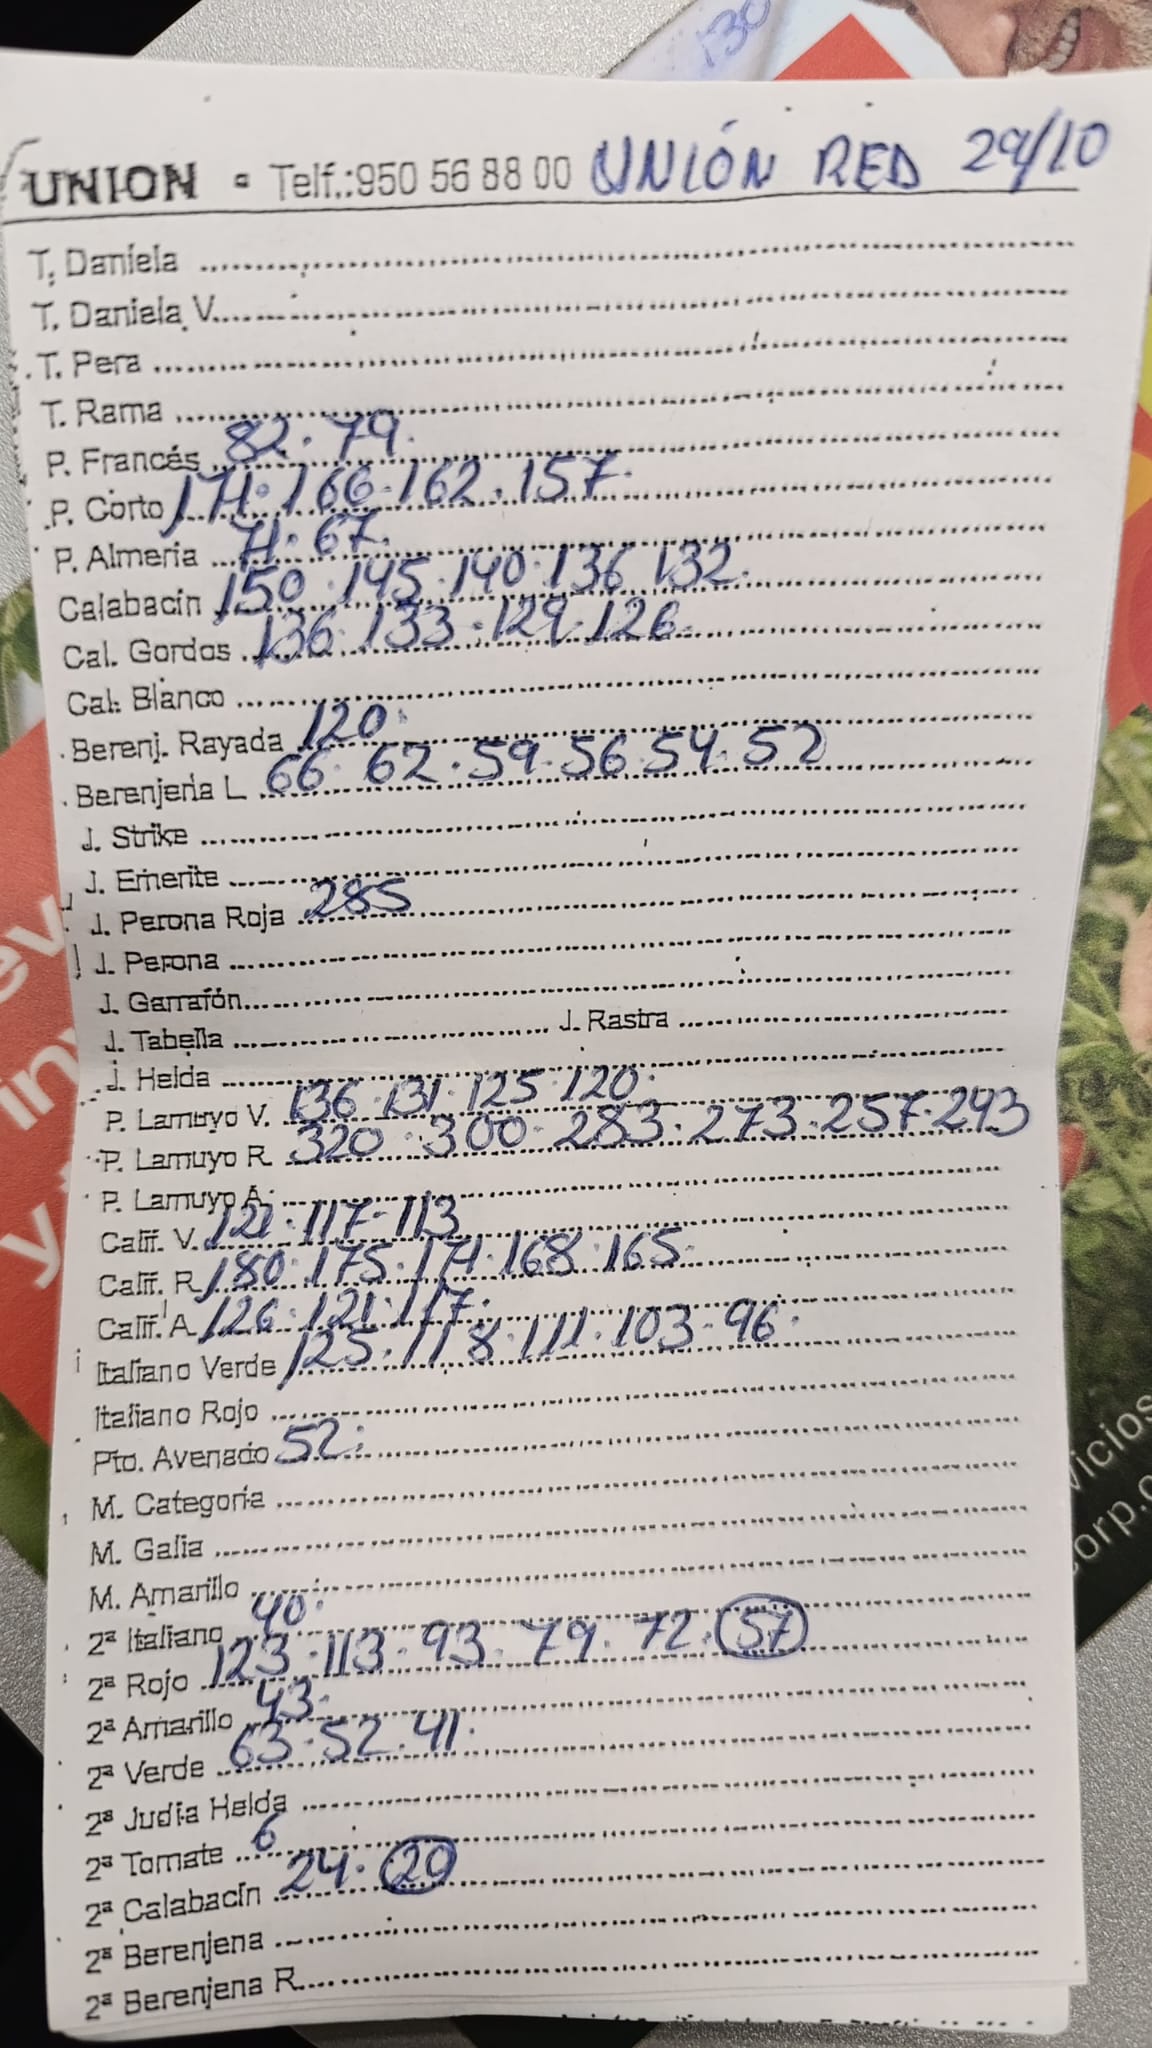 130
UNION - Telf.:950 56 88 00 UNIÓN RED 29/10
T. Daniela
T. Daniela V.
T. Pera
T. Rama
P. Francés 82. 79.
P. Corto 171. 166. 162. 157.
P. Almeria 71. 67.
Calabacín 150. 145. 140. 136 132.
Cal. Gordos 136. 133. 129. 126.
Cal. Blanco
Berenj. Rayada 120.
Berenjena L 66. 62. 59. 56. 54. 52
J. Strike
J. Emerite
J. Perona Roja 285
J. Perona
J. Garrafón
J. Tabella J. Rastra
J. Helda
P. Lamuyo V. 136. 131. 125. 120.
P. Lamuyo R. 320. 300. 283. 273. 257. 243
P. Lamuyo A.
Calif. V. 121. 117. 113
Calif. R. 180. 175. 171. 168. 165.
Calif. A. 126. 121. 117.
Italiano Verde 125. 118. 111. 103. 96.
Italiano Rojo
Pto. Averiado 52.
M. Categoría
M. Galia
M. Amarillo
2ª Italiano 40.
2ª Rojo 123. 113. 93. 79. 72. 57
2ª Amarillo 43.
2ª Verde 63. 52. 41.
2ª Judía Helda
2ª Tomate 6
2ª Calabacín 24. 20
2ª Berenjena
2ª Berenjena R.